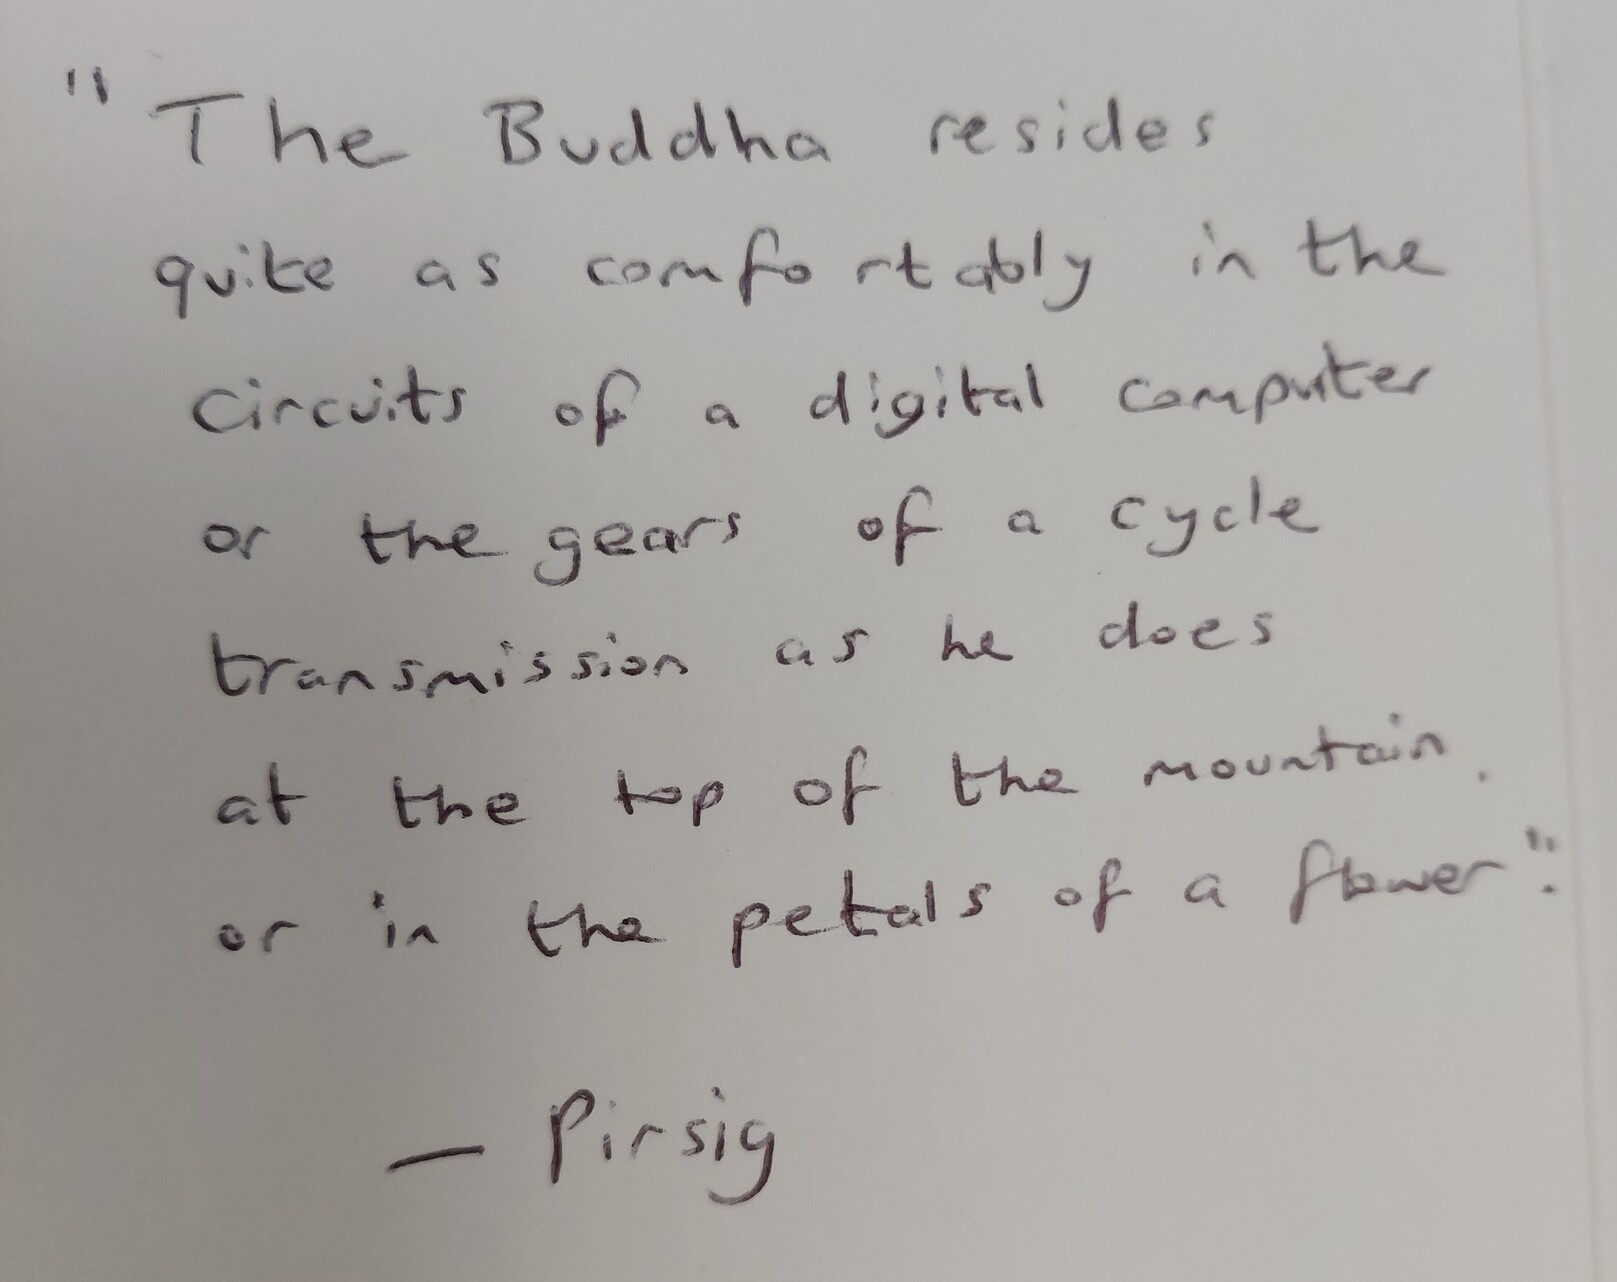 "The Buddha resides
quite as comfortably in the
circuits of a digital computer
or the gears of a cycle
transmission as he does
at the top of the mountain.
or in the petals of a flower".
— Pirsig